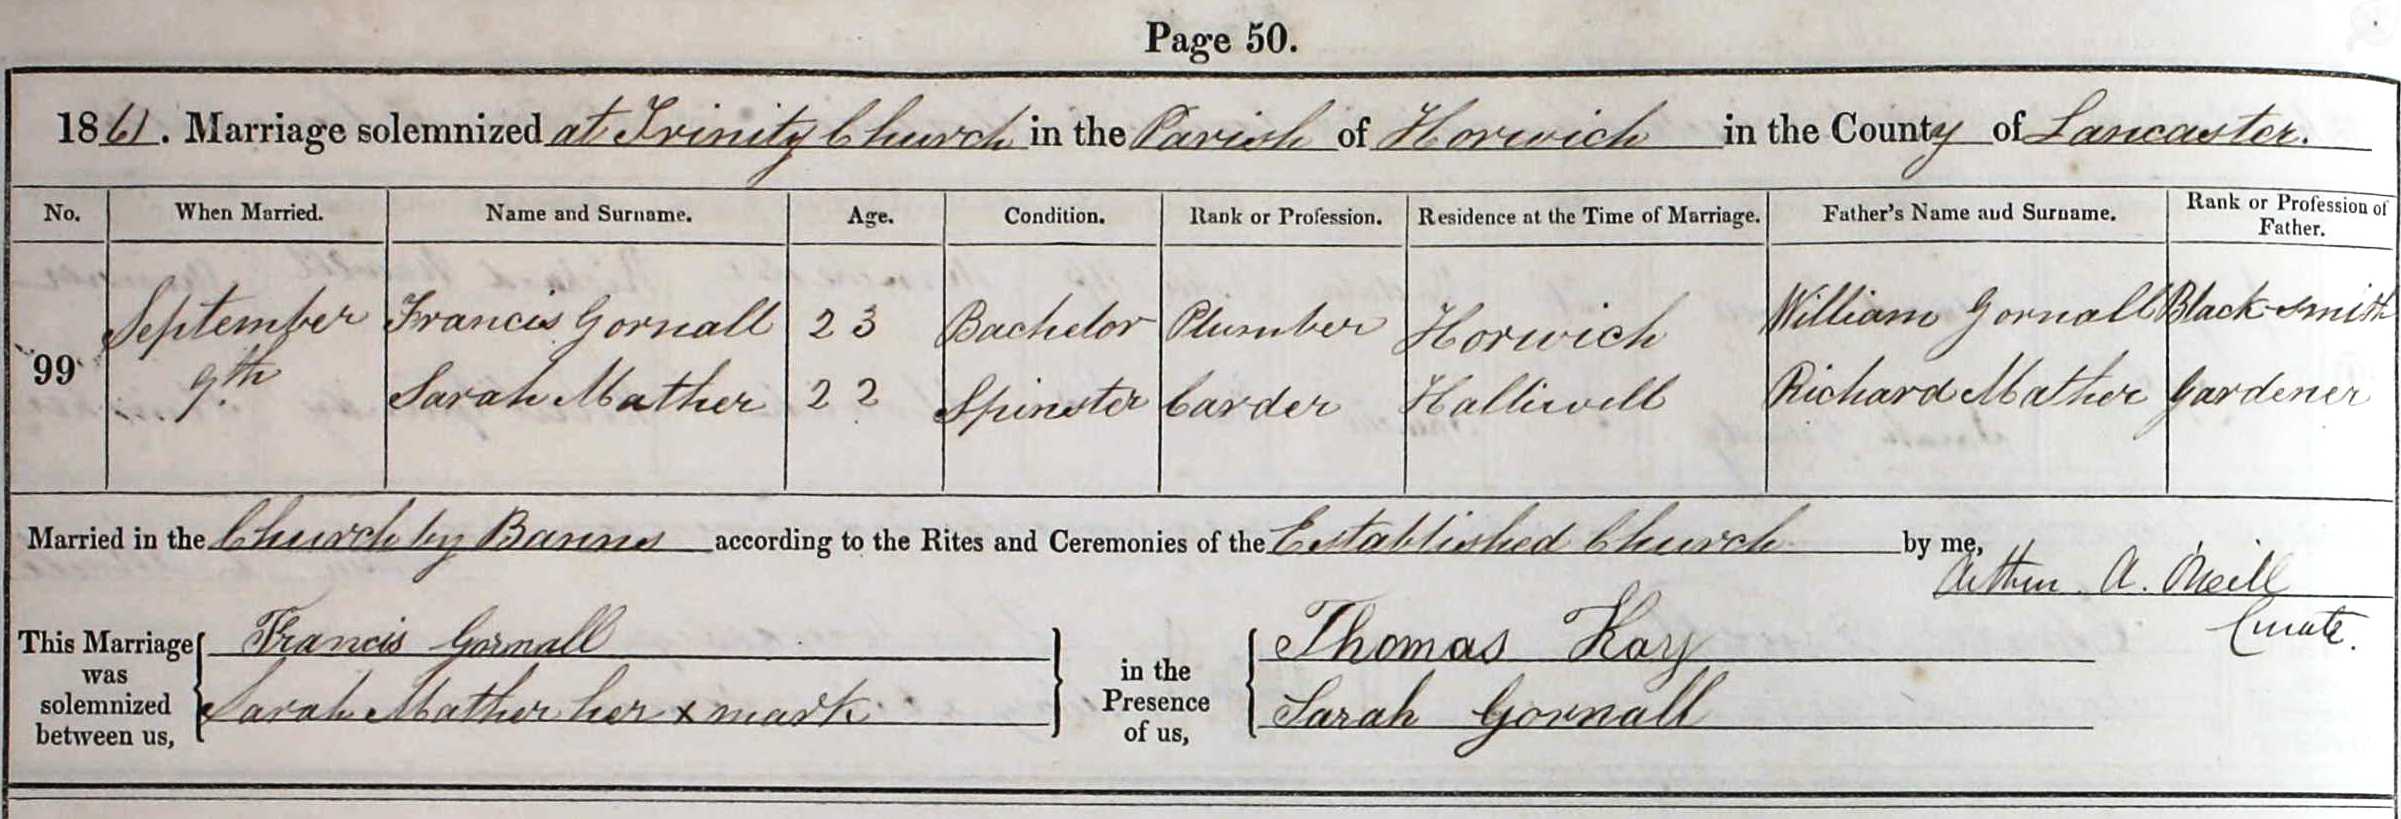 Page 50.
1861. Marriage solemnized at Trinity Church in the Parish of Horwich in the County of Lancaster.
No. When Married. Name and Surname. Age. Condition. Rank or Profession. Residence at the Time of Marriage. Father's Name and Surname. Rank or Profession of Father.
99 September 9th
Francis Gornall 23 Bachelor Plumber Horwich William Gornall Black-smith
Sarah Mather 22 Spinster Carder Halliwell Richard Mather Gardener
Married in the Church by Banns according to the Rites and Ceremonies of the Established Church by me,
Arthur A. O'Neill
Curate.
This Marriage was solemnized between us,
Francis Gornall
Sarah Mather her x mark
in the Presence of us,
Thomas Kay
Sarah Gornall